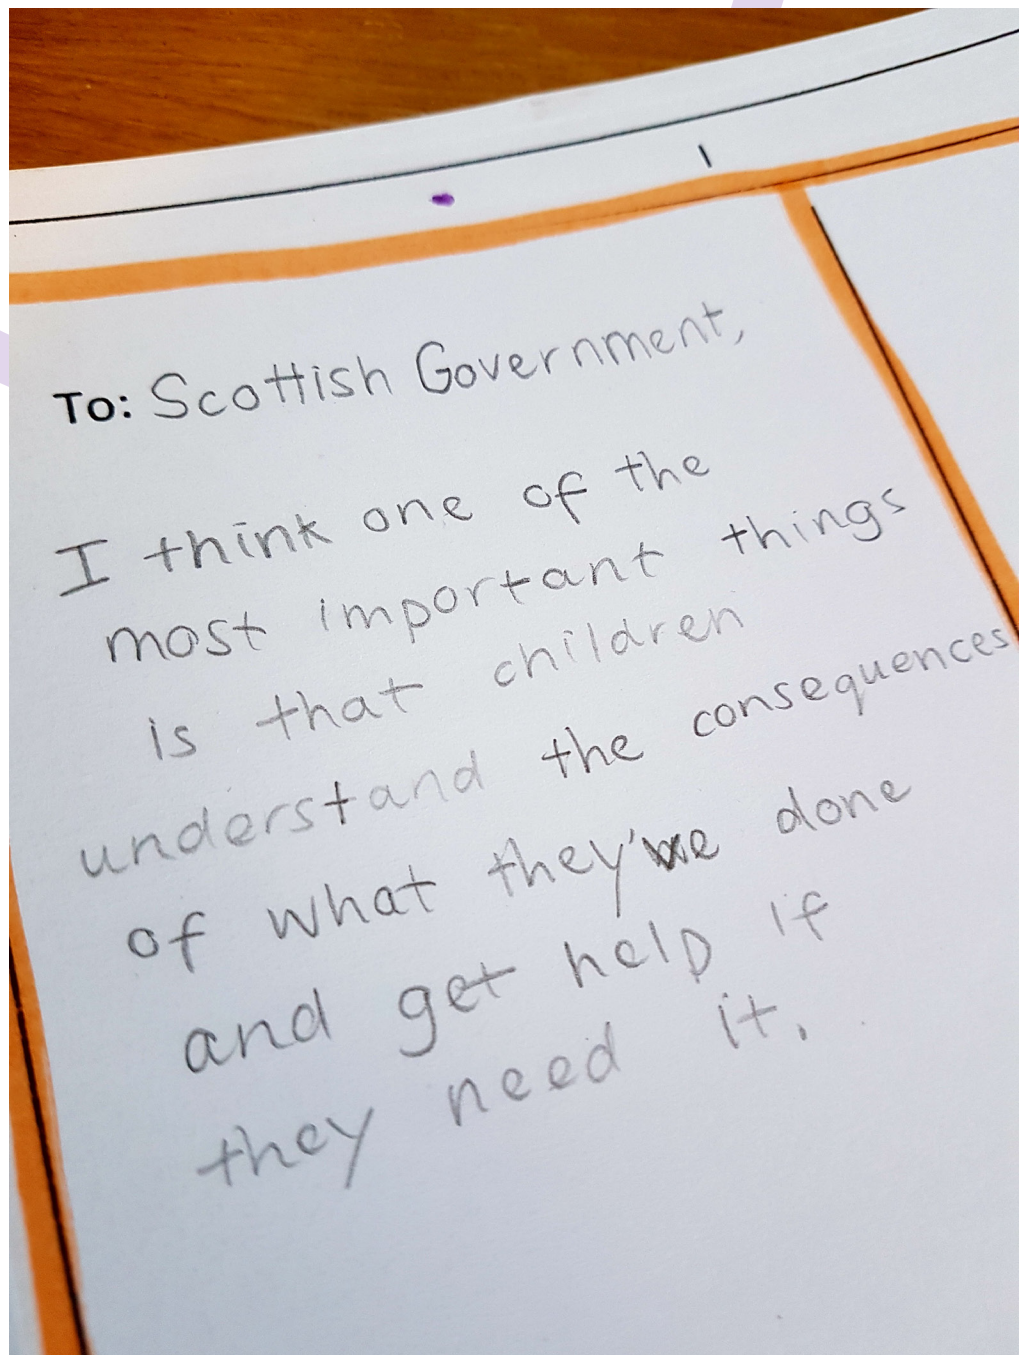 To: Scottish Government,
I think one of the
most important things
is that children
understand the consequences
of what they've done
and get help if
they need it.